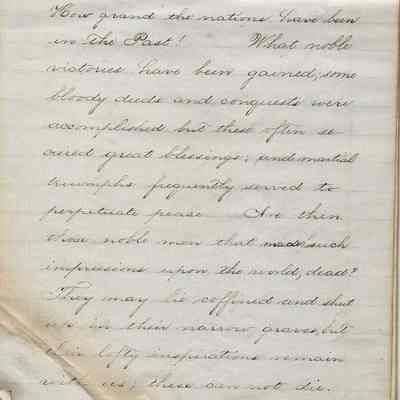 How grand the nations have been
in The Past! What noble
victories have been gained; some
bloody deeds and conquests were
accomplished but these often se-
cured great blessings; and martial
triumphs frequently served to
perpetuate peace Are then
those noble men that made such
impressions upon the world, dead?
They may be coffined and shut
up in their narrow graves, but
their lofty inspirations remain
with us; these can not die.